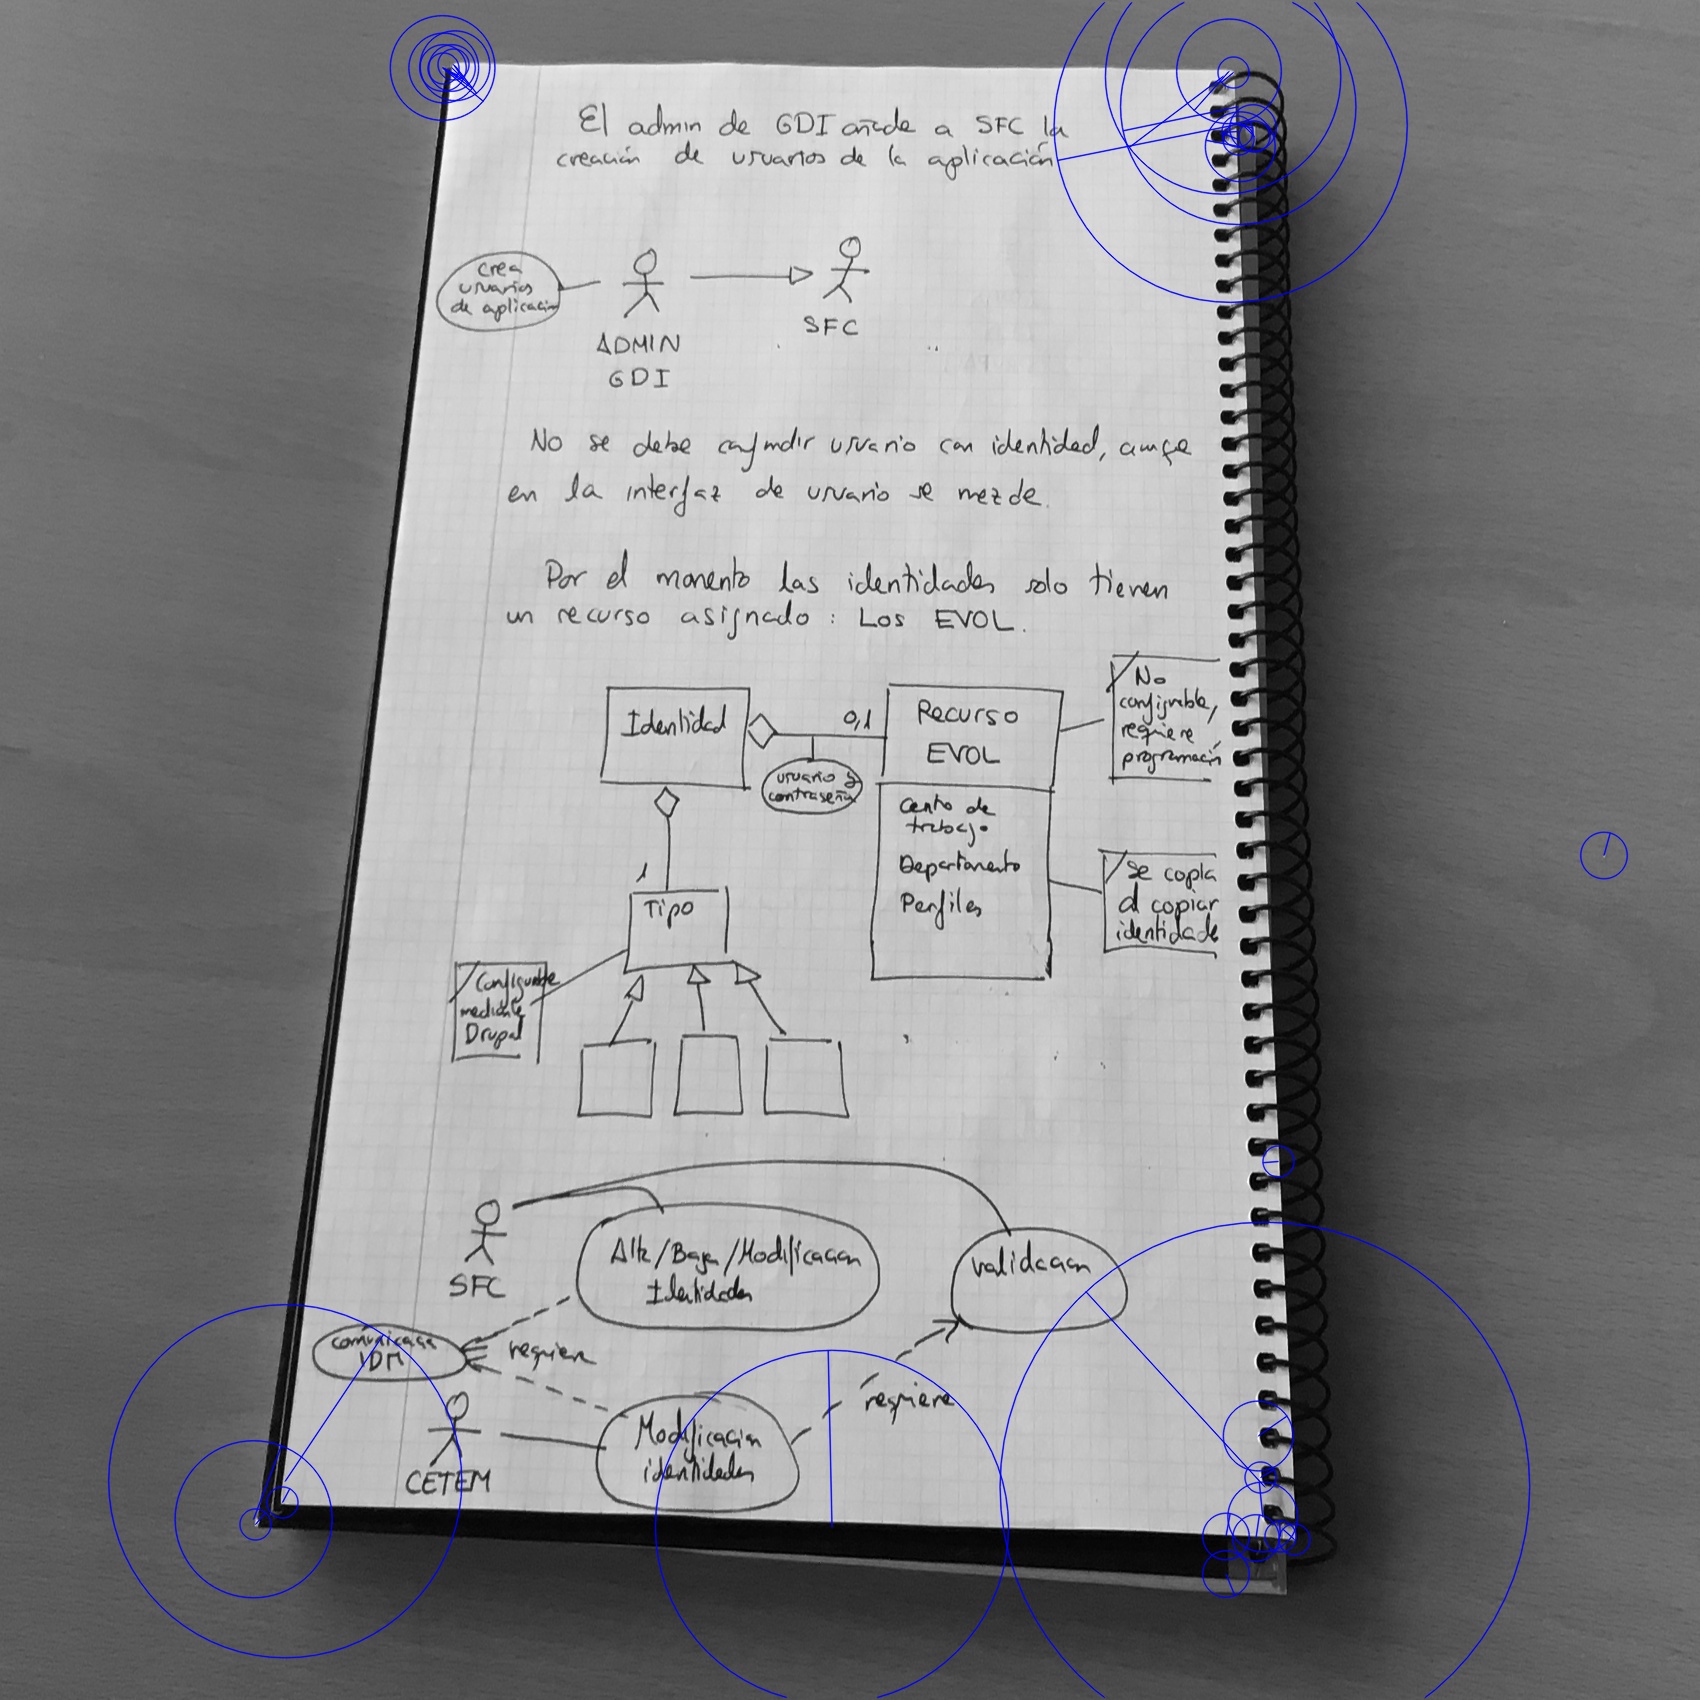 El admin de GDI añade a SFC la
creación de usuarios de la aplicación
crea
usuarios
de aplicación
ADMIN
GDI
SFC
No se debe confundir usuario con identidad, aunque
en la interfaz de usuario se mezcle.
Por el momento las identidades solo tienen
un recurso asignado: Los EVOL.
Identidad
0,1
usuario y
contraseña
Recurso
EVOL
Centro de
trabajo
Departamento
Perfiles
No
configurable,
requiere
programación
Se copia
al copiar
identidade
1
Tipo
Configurable
mediante
Drupal
SFC
Alta/Baja/Modificacion
Identidades
validacion
comunicacion
IDM
requiere
requiere
CETEM
Modificacion
identidades